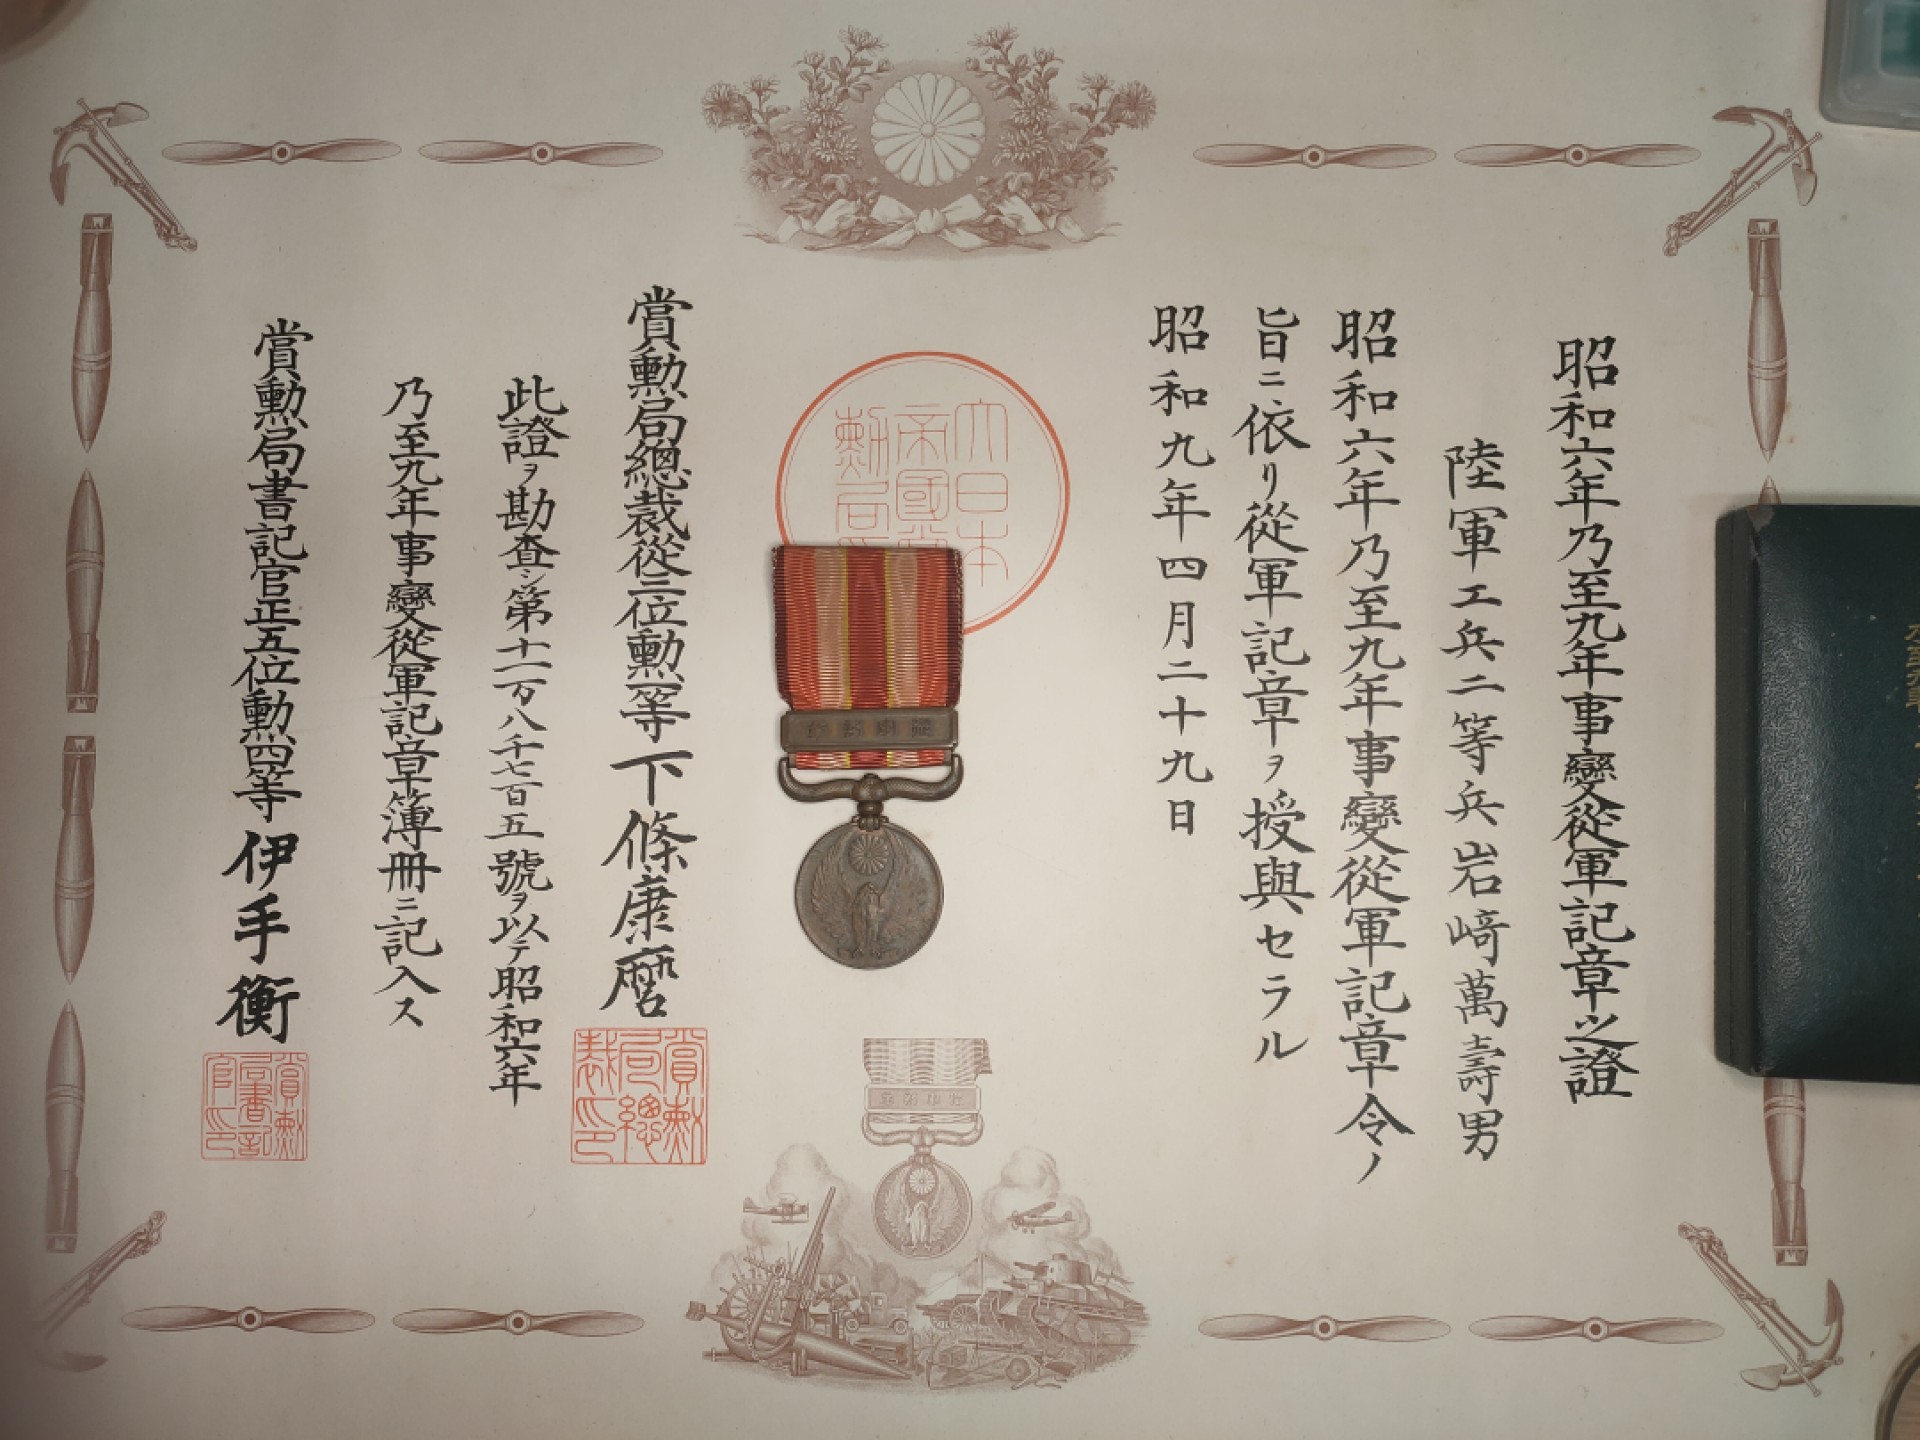 昭和六年乃至九年事變從軍記章之證
陸軍工兵二等兵岩﨑萬壽男
昭和六年乃至九年事變從軍記章令ノ
旨ニ依リ從軍記章ヲ授與セラル
昭和九年四月二十九日
大日本
帝國
勲局
賞勲局總裁從三位勲一等下條康麿
賞勲
局總
裁印
此證ヲ勘査シ第十一万八千七百五號ヲ以テ昭和六年
乃至九年事變從軍記章簿冊ニ記入ス
賞勲局書記官正五位勲四等伊手衡
賞勲
局書記
官印